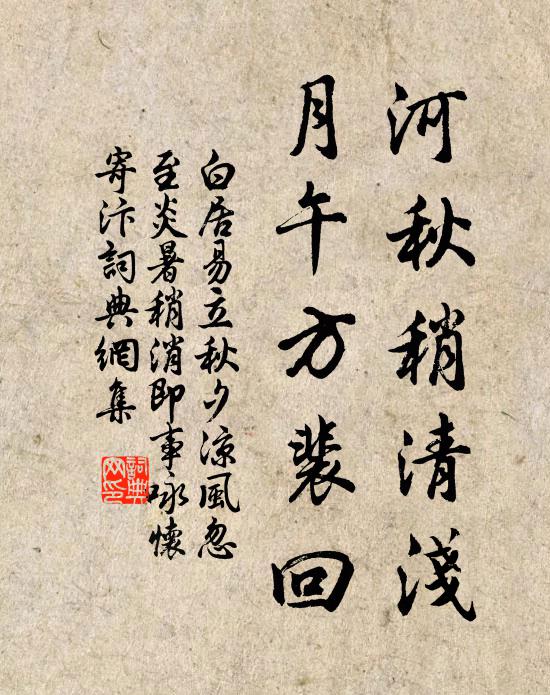 河秋稍清淺
月午方裴回
白居易立秋夕涼風忽
至炎暑稍消即事咏懷
寄汴詞典網集
詞典
网印